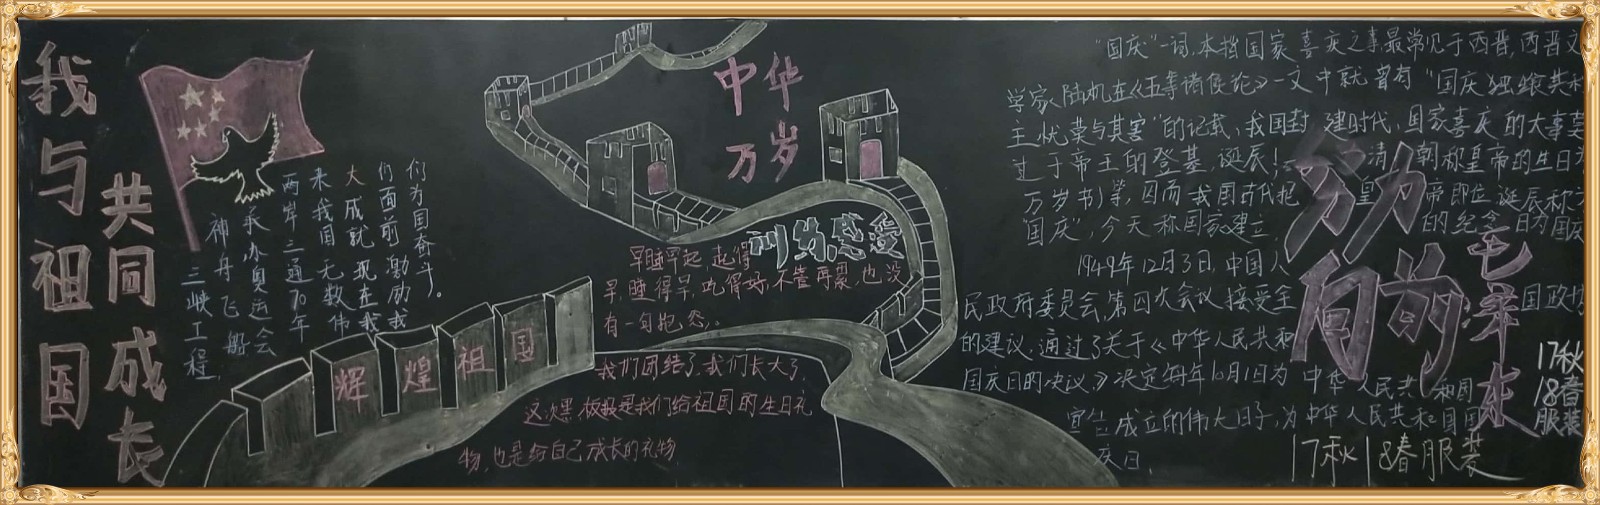 我与祖国
共同成长
三峡工程,
神舟飞船
承办奥运会
两岸三通70年
来我国无数伟
大成就现在我
们面前激励我
们为国奋斗。
辉煌祖国
中华
万岁
训练感受
早睡早起,起得
早,睡得早,吃得好,不管再累,也没
有一句抱怨。
我们团结了,我们长大了,
这次黑板报是我们给祖国的生日礼
物,也是给自己成长的礼物
"国庆"一词,本指国家喜庆之事,最常见于西晋,西晋文
学家陆机在《五等诸侯论》一文中就曾有"国庆独飨共和
主忧莫与其害"的记载,我国封建时代,国家喜庆的大事莫
过于帝王的登基,诞辰!清朝称皇帝的生日为
万岁节)等,因而我国古代把皇帝即位诞辰称为
国庆",今天称国家建立的纪念日为国庆
1949年12月3日,中国人
民政府委员会,第四次会议接受全国政协
的建议,通过了关于《中华人民共和
国庆日的决议》决定每年10月1日为中华人民共和国
宣告成立的伟大日子,为中华人民共和国国
庆日,
努力
向前
毛泽东
17秋
18春
服装
17秋18春服装